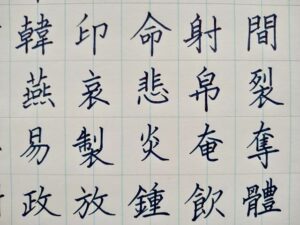 韓印命射間
燕哀悲帛裂
易製炎奄奪
政放鍾飲體